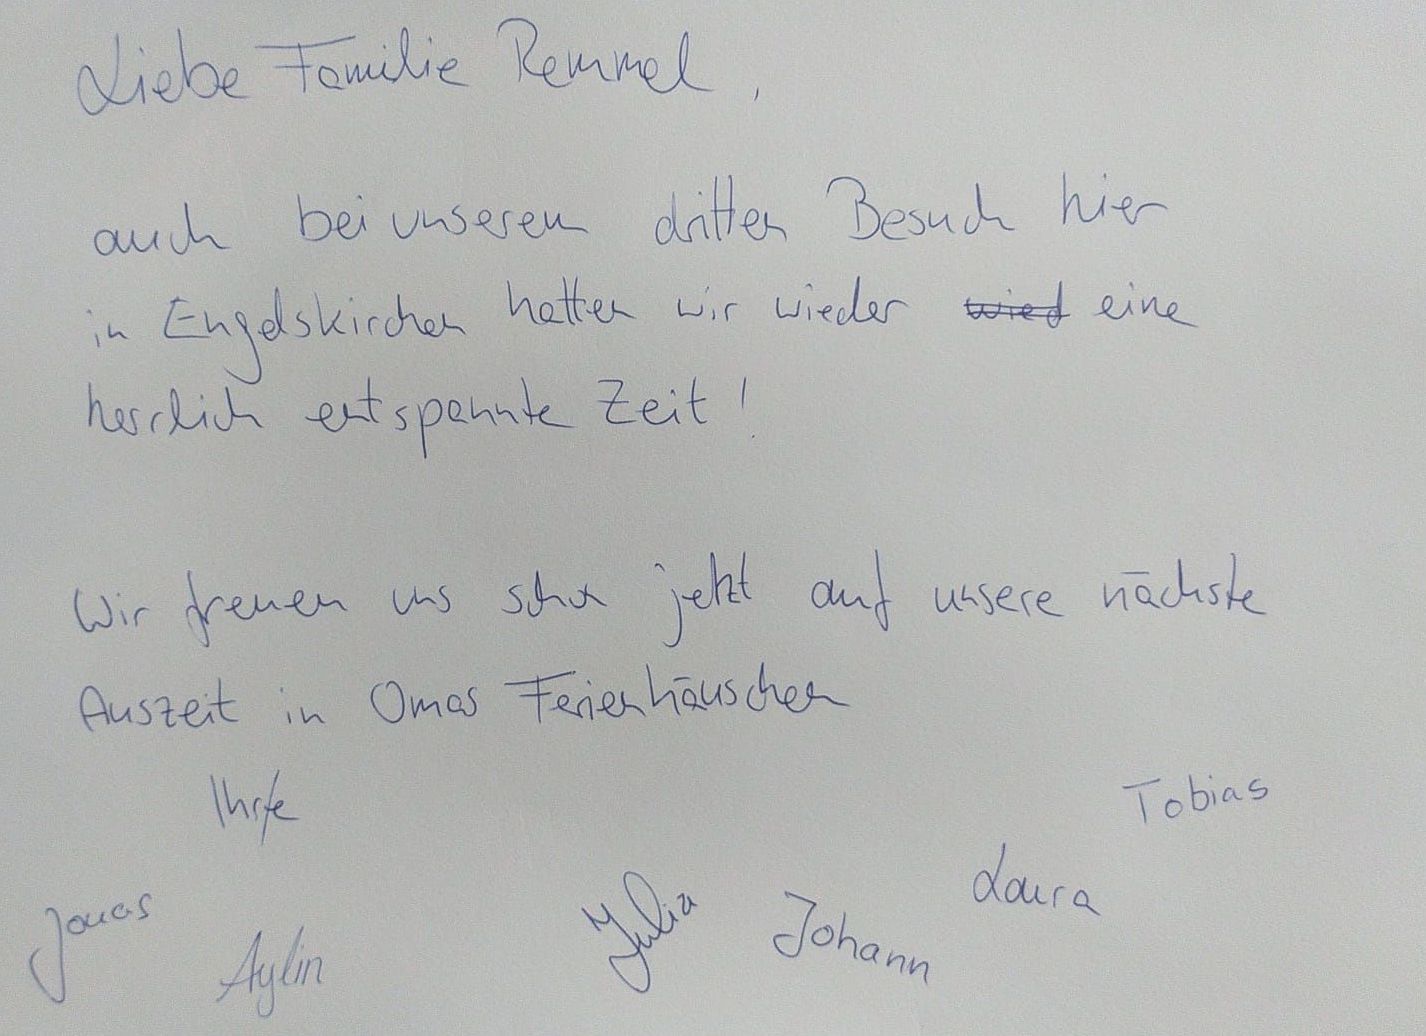 Liebe Familie Remmel,
auch bei unserem dritten Besuch hier
in Engelskirchen hatten wir wieder wied eine
herrlich entspannte Zeit!
Wir freuen uns schon jetzt auf unsere nächste
Auszeit in Omas Ferienhäuschen
Ihre
Tobias
Laura
Jonas
Aylin
Julia
Johann